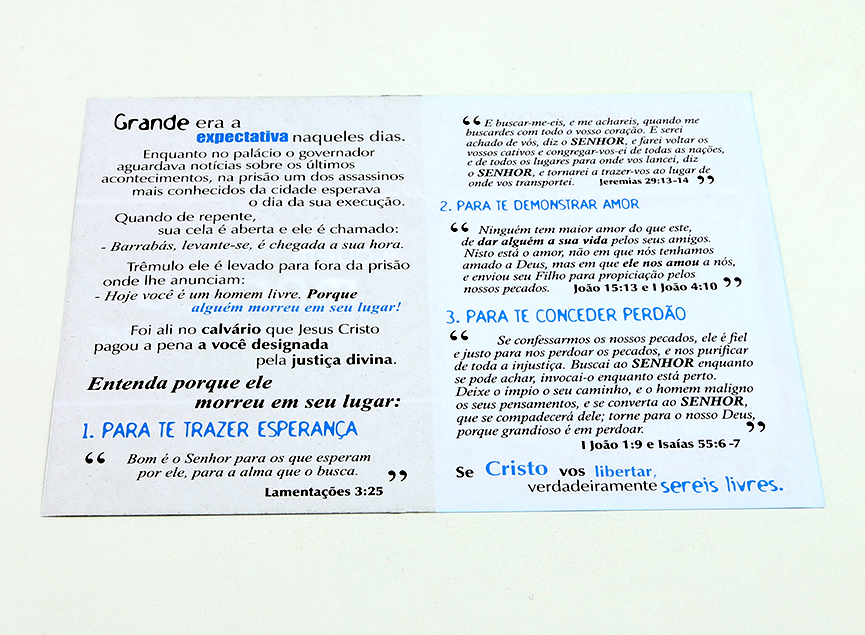 Grande era a
expectativa naqueles dias.
Enquanto no palácio o governador
aguardava notícias sobre os últimos
acontecimentos, na prisão um dos assassinos
mais conhecidos da cidade esperava
o dia da sua execução.
Quando de repente,
sua cela é aberta e ele é chamado:
- Barrabás, levante-se, é chegada a sua hora.
Trêmulo ele é levado para fora da prisão
onde lhe anunciam:
- Hoje você é um homem livre. Porque
alguém morreu em seu lugar!
Foi ali no calvário que Jesus Cristo
pagou a pena a você designada
pela justiça divina.
Entenda porque ele
morreu em seu lugar:
1. PARA TE TRAZER ESPERANÇA
“ Bom é o Senhor para os que esperam
por ele, para a alma que o busca. ”
Lamentações 3:25
“ E buscar-me-eis, e me achareis, quando me
buscardes com todo o vosso coração. E serei
achado de vós, diz o SENHOR, e farei voltar os
vossos cativos e congregar-vos-ei de todas as nações,
e de todos os lugares para onde vos lancei, diz
o SENHOR, e tornarei a trazer-vos ao lugar de
onde vos transportei. Jeremias 29:13-14 ”
2. PARA TE DEMONSTRAR AMOR
“ Ninguém tem maior amor do que este,
de dar alguém a sua vida pelos seus amigos.
Nisto está o amor, não em que nós tenhamos
amado a Deus, mas em que ele nos amou a nós,
e enviou seu Filho para propiciação pelos
nossos pecados. João 15:13 e I João 4:10 ”
3. PARA TE CONCEDER PERDÃO
“ Se confessarmos os nossos pecados, ele é fiel
e justo para nos perdoar os pecados, e nos purificar
de toda a injustiça. Buscai ao SENHOR enquanto
se pode achar, invocai-o enquanto está perto.
Deixe o ímpio o seu caminho, e o homem maligno
os seus pensamentos, e se converta ao SENHOR,
que se compadecerá dele; torne para o nosso Deus,
porque grandioso é em perdoar. ”
I João 1:9 e Isaías 55:6 -7
Se Cristo vos libertar,
verdadeiramente sereis livres.